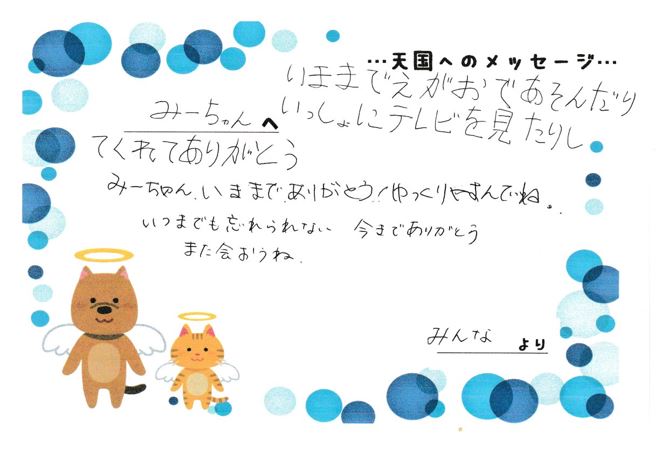 …天国へのメッセージ…
みーちゃんへ
いままでえがおであそんだり
いっしょにテレビを見たりし
てくれてありがとう
みーちゃん、いままでありがとう！ゆっくりやすんでね。
いつまでも忘れられない 今までありがとう
また会おうね。
みんな より